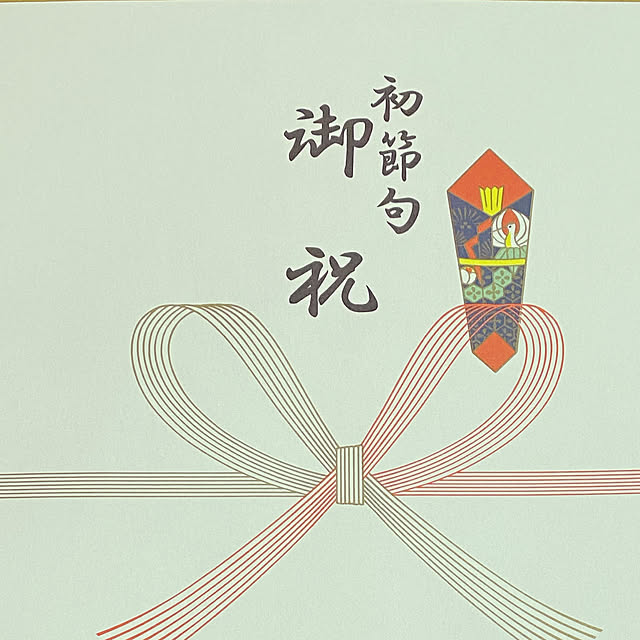 初節句
御祝